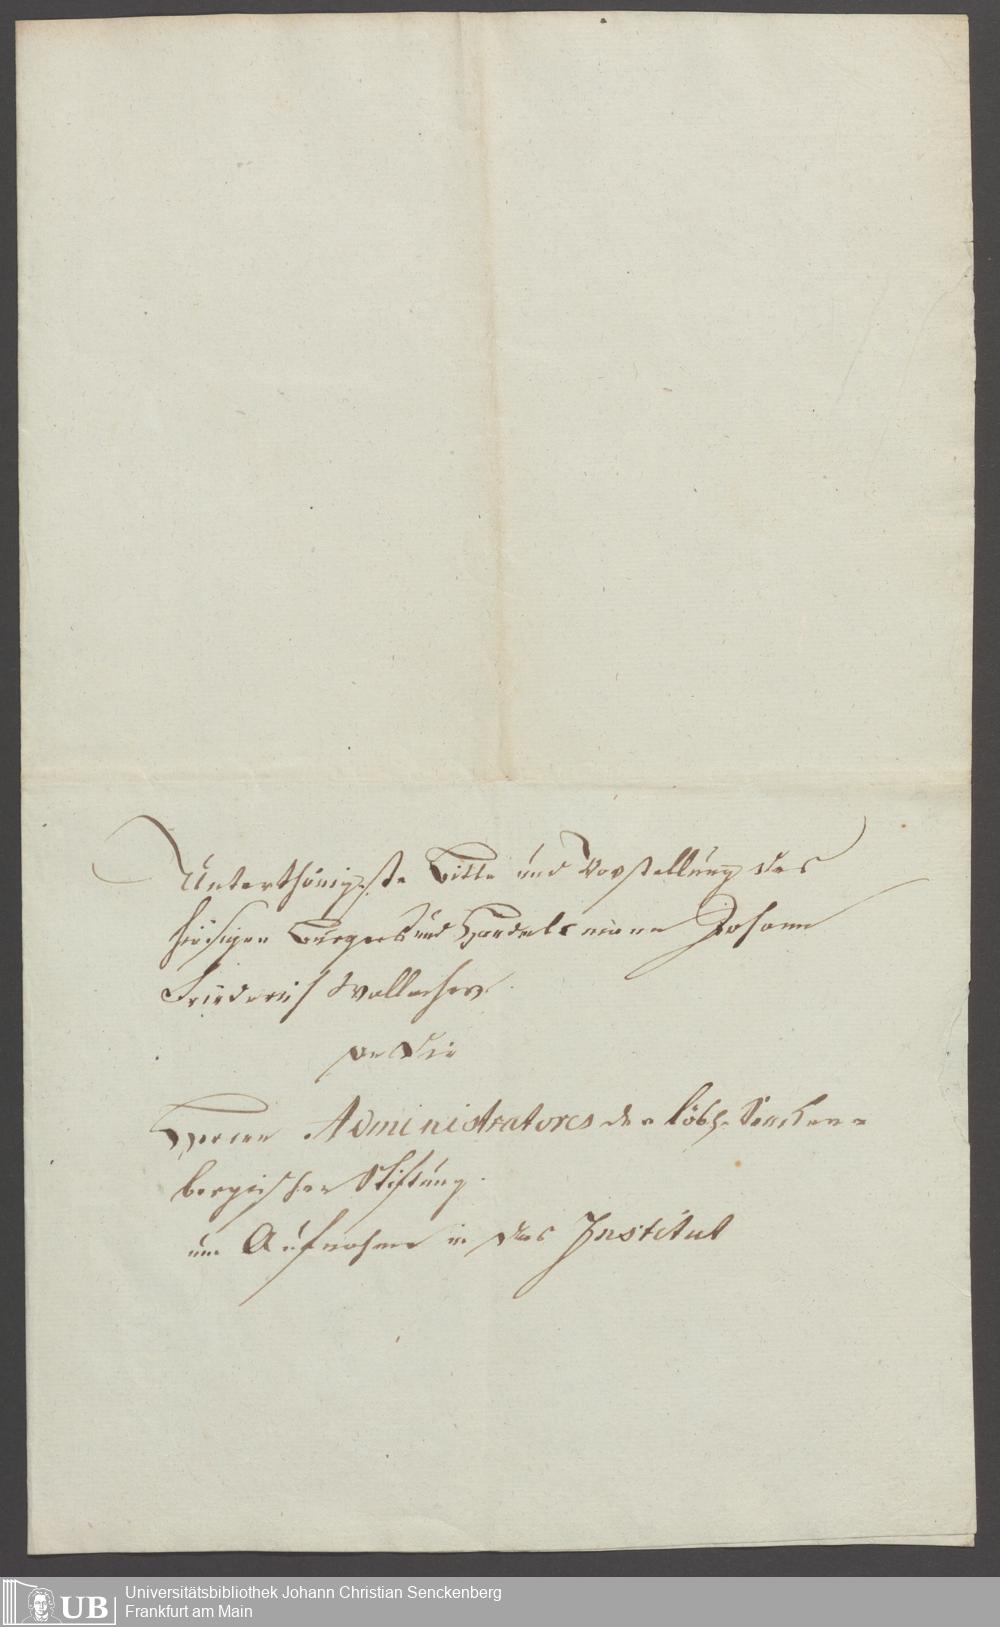 Unterthänigste Bitte und Vorstellung des
hiesigen Burgers und Handelsmann Johann
Friederich Wallacher
an die
Herren Administratores der löbl. Sencken-
bergischen Stiftung.
um Aufnahme in das Institut
UB
Universitätsbibliothek Johann Christian Senckenberg
Frankfurt am Main